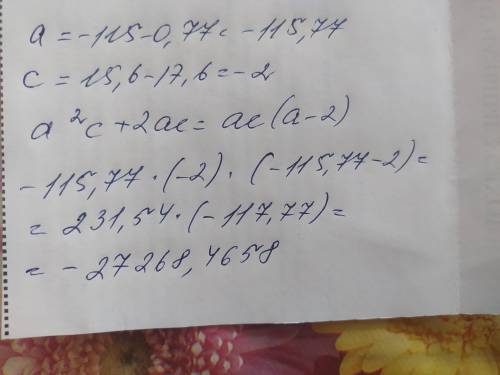 a = -115-0,77= -115,77
c = 15,6-17,6=-2
a²c+2ac= ac(a-2)
-115,77·(-2)·(-115,77-2)=
= 231,54·(-117,77)=
= -27268,4658